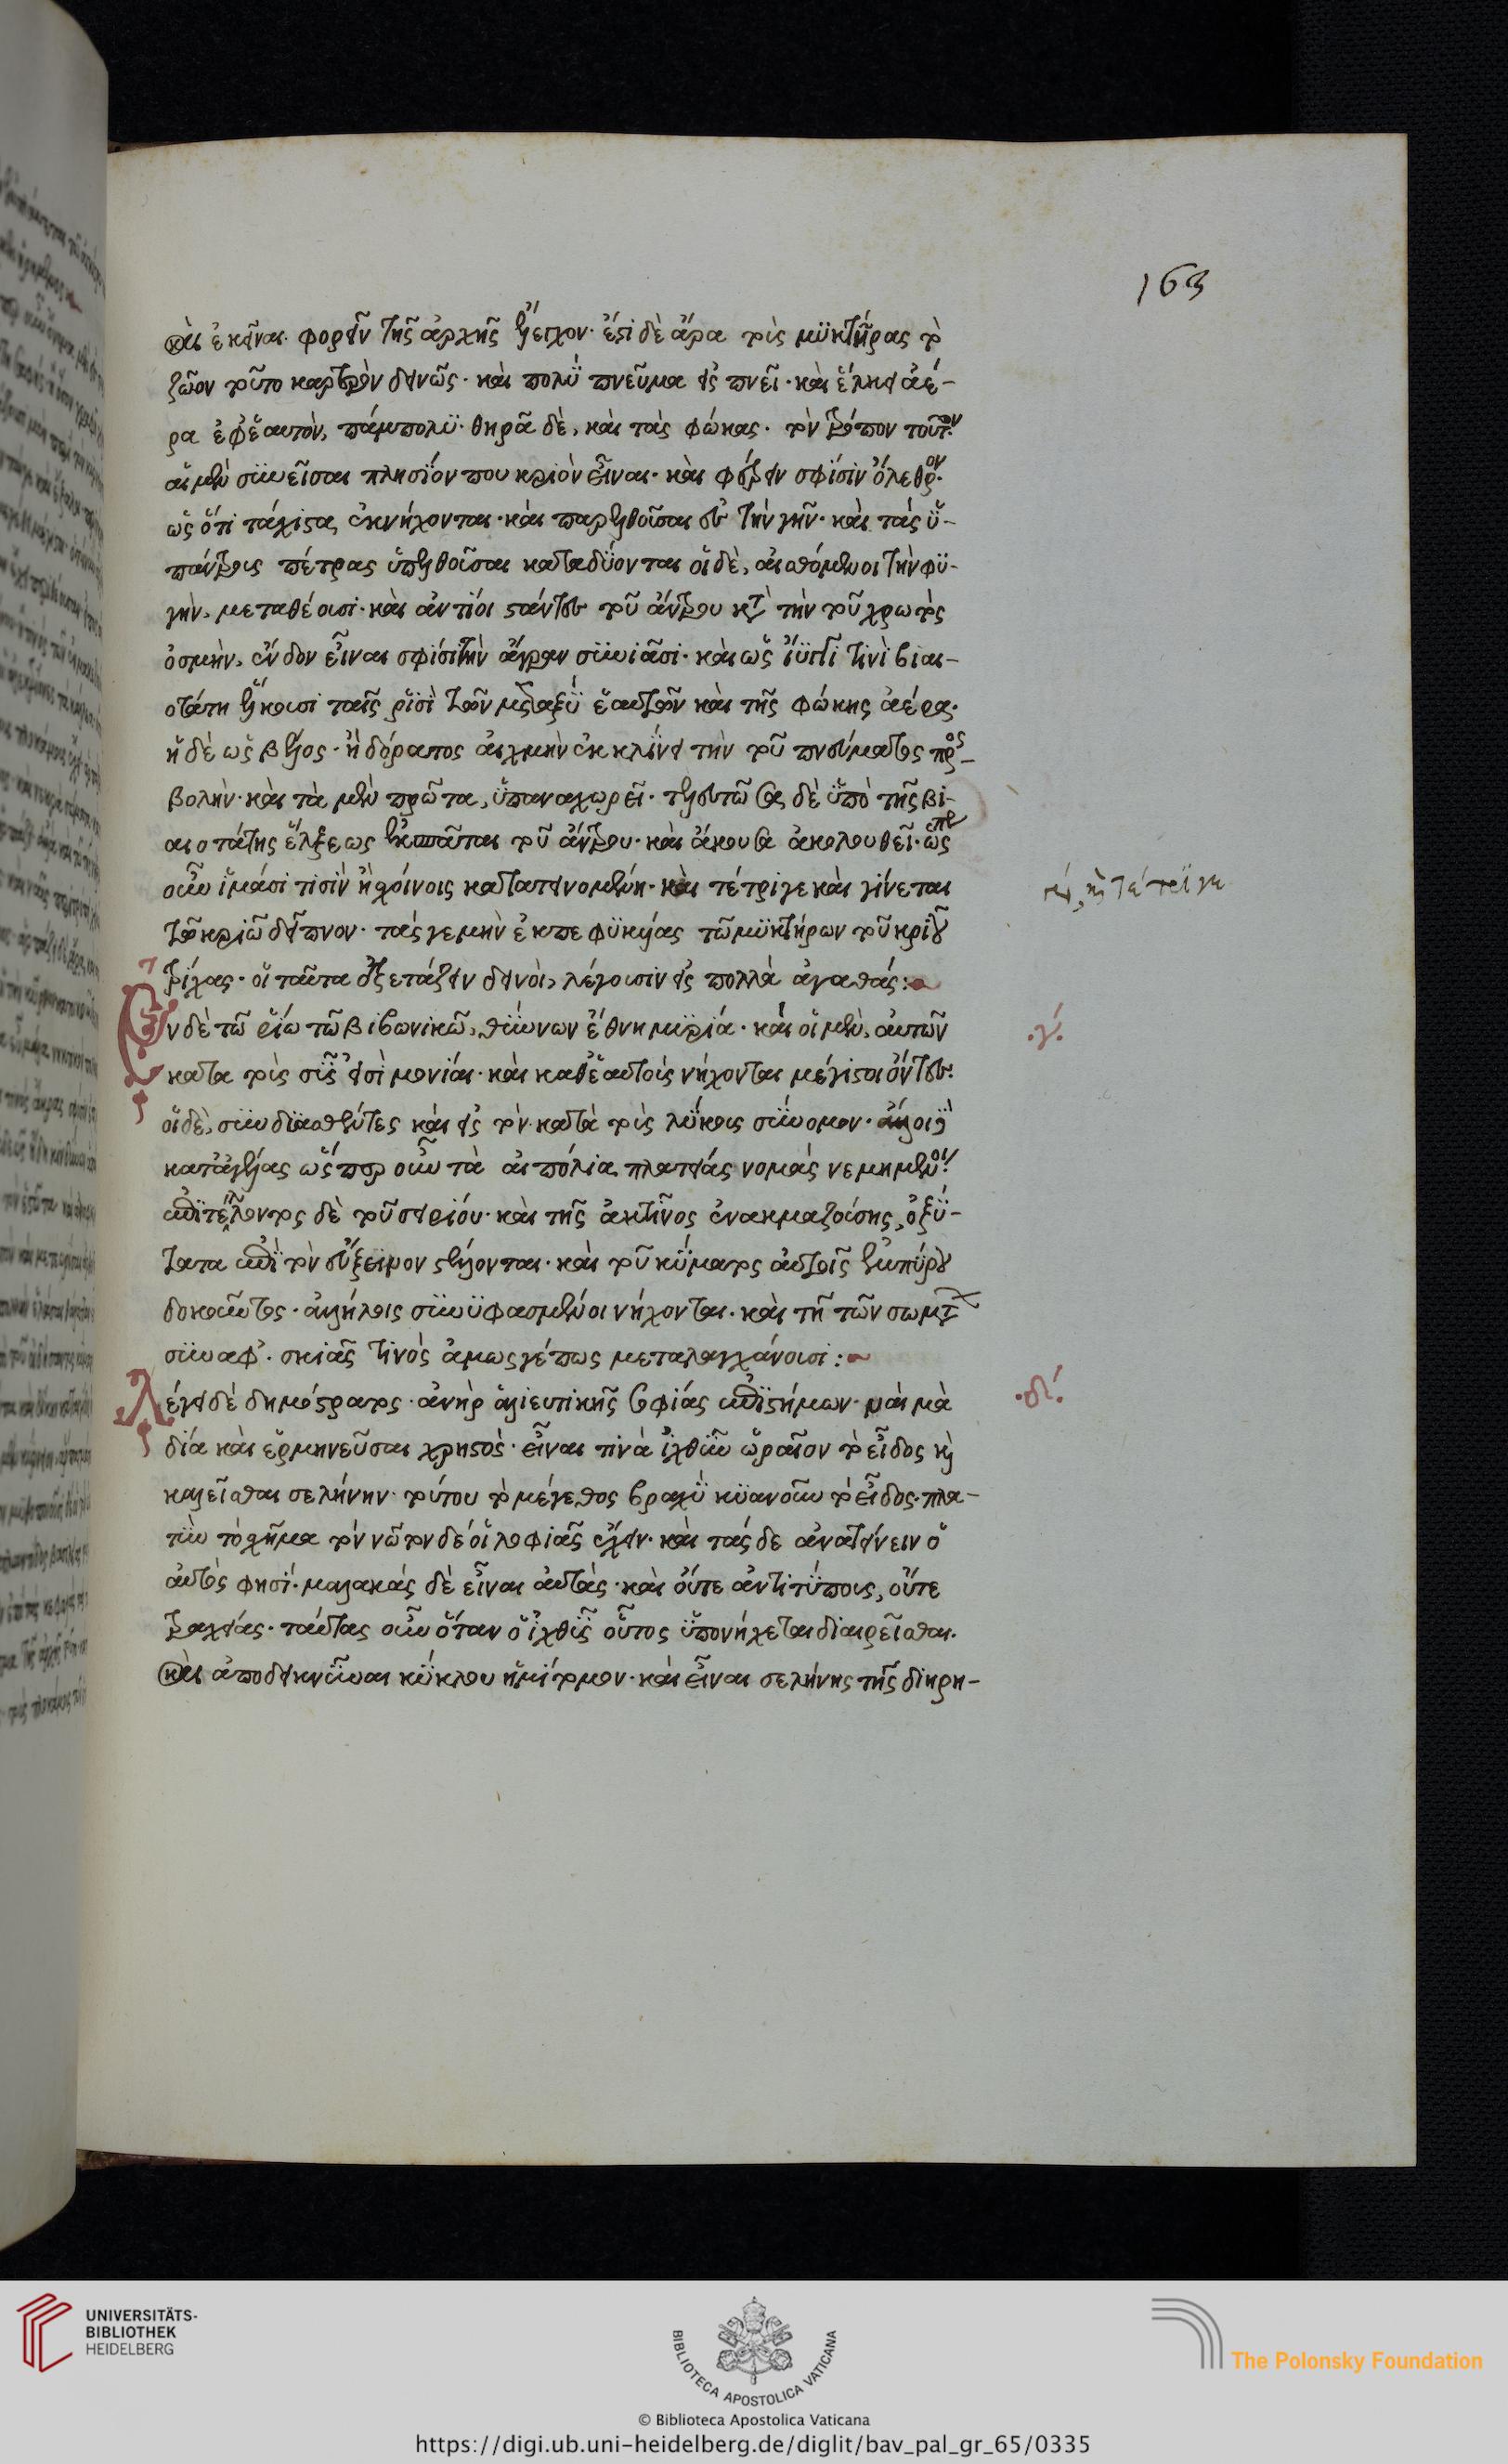 163
καὶ ἐκεῖναι φορεῖν τῆς ἀρχῆς εἶχον· ἔστι δὲ ἄρα τοὺς μυκτῆρας τὸ
ζῶον τοῦτο καρτερὸν δεινῶς· καὶ πολὺ πνεῦμα εἰσπνεῖ· καὶ ἕλκει ἀέ-
ρα ἐφ' ἑαυτὸν, πάμπολυ· θηρᾶ δὲ, καὶ τὰς φώκας· τὸν τρόπον τοῦτον·
αἱ μὲν συνεῖσαι πλησίον που κριὸν εἶναι· καὶ φέρειν σφίσιν ὄλεθρον·
ὡς ὅτι τάχιστα ἐκνήχονται· καὶ παρελθοῦσαι ἐς τὴν γῆν· καὶ τὰς ὑ-
πάντρους πέτρας ὑπελθοῦσαι καταδύονται οἱ δὲ, αἰσθόμενοι τὴν φυ-
γὴν, μεταθέουσι· καὶ ἀντίοι στάντες τοῦ ἄντρου κατὰ τὴν τοῦ χρωτὸς
ὀσμὴν, ἔνδον εἶναι σφίσι τὴν ἄγραν συνιᾶσι· καὶ ὡς ἴυγγί τινὶ βιαι-
οτάτη ἕλκουσι ταῖς ῥισὶ τῶν μεταξὺ ἑαυτῶν καὶ τῆς φώκης ἀέρα·
ἡ δὲ ὡς βέλος· ἢ δόρατος αἰχμὴν ἐκκλίνει τὴν τοῦ πνεύματος προσ-
βολὴν· καὶ τὰ μὲν πρῶτα, ὑπαναχωρεῖ· τελευτῶσα δὲ ὑπὸ τῆς βι-
αιοτάτης ἕλξεως ἐκσπᾶται τοῦ ἄντρου· καὶ ἄκουσα ἀκολουθεῖ· ὥσπερ
οὖν ἱμάσι τισὶν ἢ σχοίνοις κατατεινομένη· καὶ τέτριγε καὶ γίνεται
τῶ κριῶ δεῖπνον· τάς γε μὴν ἐκπεφυκυίας τῶ μυκτήρων τοῦ κριοῦ
τρίχας· οἱ ταῦτα ἐξετάζειν δεινοὶ, λέγουσιν εἰς πολλὰ ἀγαθάς:
Ἐν δὲ τῶ ῥίω τῶ βιβωνικῶ, θύννων ἔθνη μυρία· καὶ οἱ μὲν, αὐτῶν
·γ·
κατὰ τοὺς σῦς εἰσὶ μονίαι· καὶ καθ' ἑαυτοὺς νήχονται μέγιστοι ὄντες·
οἱ δὲ, συνδυασθέντες καὶ εἰς τὸν κατὰ τοὺς λύκους σύννομον· ἄλλοι
κατ' ἀγέλας ὥσπερ οὖν τὰ αἰπόλια πλατείας νομὰς νεμημένοι·
ἐπιτέλλοντος δὲ τοῦ σειρίου· καὶ τῆς ἀκτῖνος ἐνακμαζούσης, ὀξύ-
τατα ἐπὶ τὸν εὔξεινον στέλλονται· καὶ τοῦ κύματος αὐτοῖς ἐμπύρου
δοκοῦντος· ἀλλήλοις συνυφασμένοι νήχονται· καὶ τῆ τῶν σωμάτων
συναφῆ· σκιᾶς τινὸς ἁμωσγέπως μεταλαγχάνουσι:
Λέγει δὲ δημόστρατος· ἀνὴρ ἁλιευτικῆς σοφίας ἐπιστήμων· μὰ
·δ·
δία καὶ ἑρμηνεῦσαι χρηστὸς· εἶναι τινὰ ἰχθὺν ὡραῖον τὸ εἶδος καὶ
καλεῖσθαι σελήνην· τούτου τὸ μέγεθος βραχὺ κυανοῦν τὸ εἶδος· πλα-
τὺν τὸ σχῆμα τὸν νῶτον δέ οἱ λοφιᾶς ἔχειν· καὶ τάσδε ἀνατείνειν ὁ
αὐτός φησί· μαλακὰς δὲ εἶναι αὐτὰς· καὶ οὔτε ἀντιτύπους, οὔτε
τραχείας· ταύτας οὖν ὅταν ὁ ἰχθῦς οὗτος ὑπονήχεται διαιρεῖσθαι·
καὶ ἀποδεικνύναι κύκλου ἡμίτομον· καὶ εἶναι σελήνης τῆς διηρη-
UNIVERSITÄTS-
BIBLIOTHEK
HEIDELBERG
BIBLIOTECA APOSTOLICA VATICANA
The Polonsky Foundation
© Biblioteca Apostolica Vaticana
https://digi.ub.uni-heidelberg.de/diglit/bav_pal_gr_65/0335